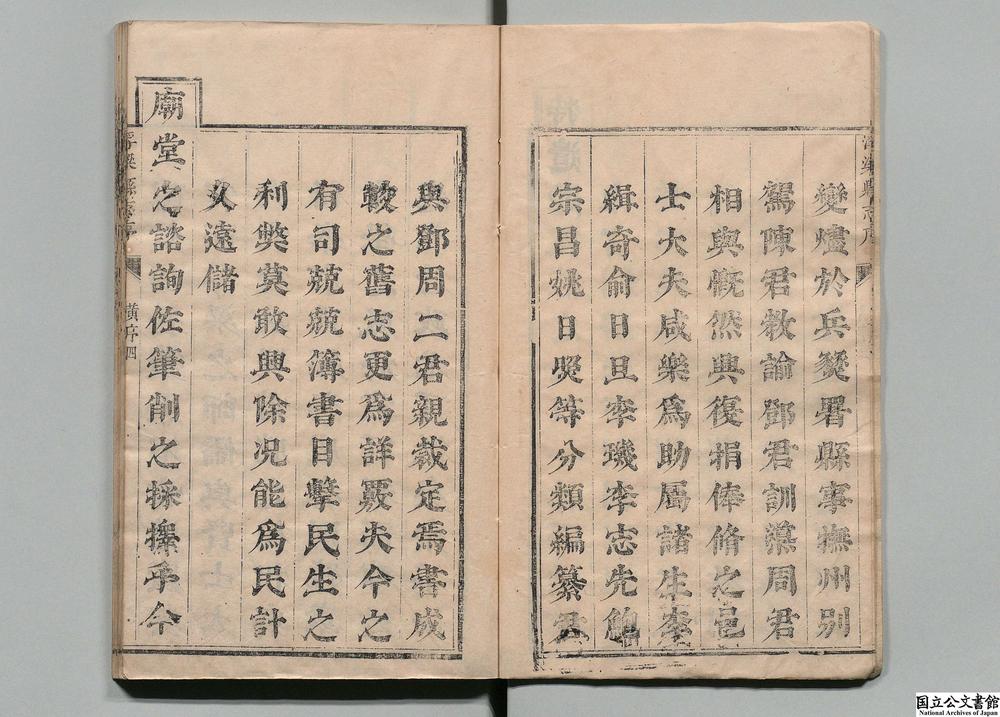 變燼於兵燹署縣事撫州別
駕陳君教諭鄧君訓導周君
相與慨然興復捐俸脩之邑
士大夫咸樂為助屬諸生李
緝奇俞日旦李璣李志先鮑
宗昌姚日煚等分類編纂君
與鄧周二君親裁定焉書成
較之舊志更為詳覈夫今之
有司兢兢簿書目擊民生之
利獘莫敢興除况能為民計
久遠儲
廟堂之諮詢佐筆削之採擇乎今
浮梁縣志序
橫序四
国立公文書館
National Archives of Japan